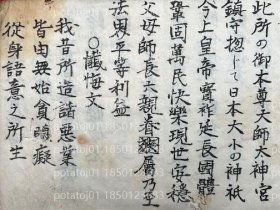 此所の御本尊大師太神宮
鎮守惣じて日本大小の神祇
今上皇帝寳祚延長國體
鞏固萬民快樂現世安穏
父母師長六親眷属乃至
法界平等利益
〇懺悔文
我昔所造諸悪業
皆由無始貪瞋癡
從身語意之所生